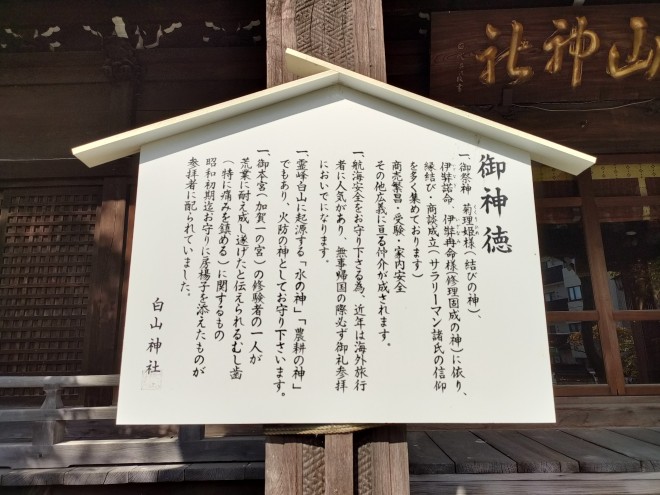 山神社
御神徳
一、御祭神 菊理姫様(結びの神)、
伊弉諾命、伊弉冉命様(修理固成の神)に依り、
縁結び・商談成立(サラリーマン諸氏の信仰
を多く集めております)
商売繁昌・受験・家内安全
その他広義に亘る仲介が成されます。
一、航海安全をお守り下さる為、近年は海外旅行
者に人気があり、無事帰国の際必ず御礼参拝
においでになります。
一、霊峰白山に起源する「水の神」「農耕の神」
でもあり、火防の神としてお守り下さいます。
一、御本宮(加賀一の宮)の修験者の一人が
荒業に耐え成し遂げたと伝えられるむし歯
(特に痛みを鎮める)に関するもの
昭和初期迄お守りに房楊子を添えたものが
参拝者に配られていました。
白山神社